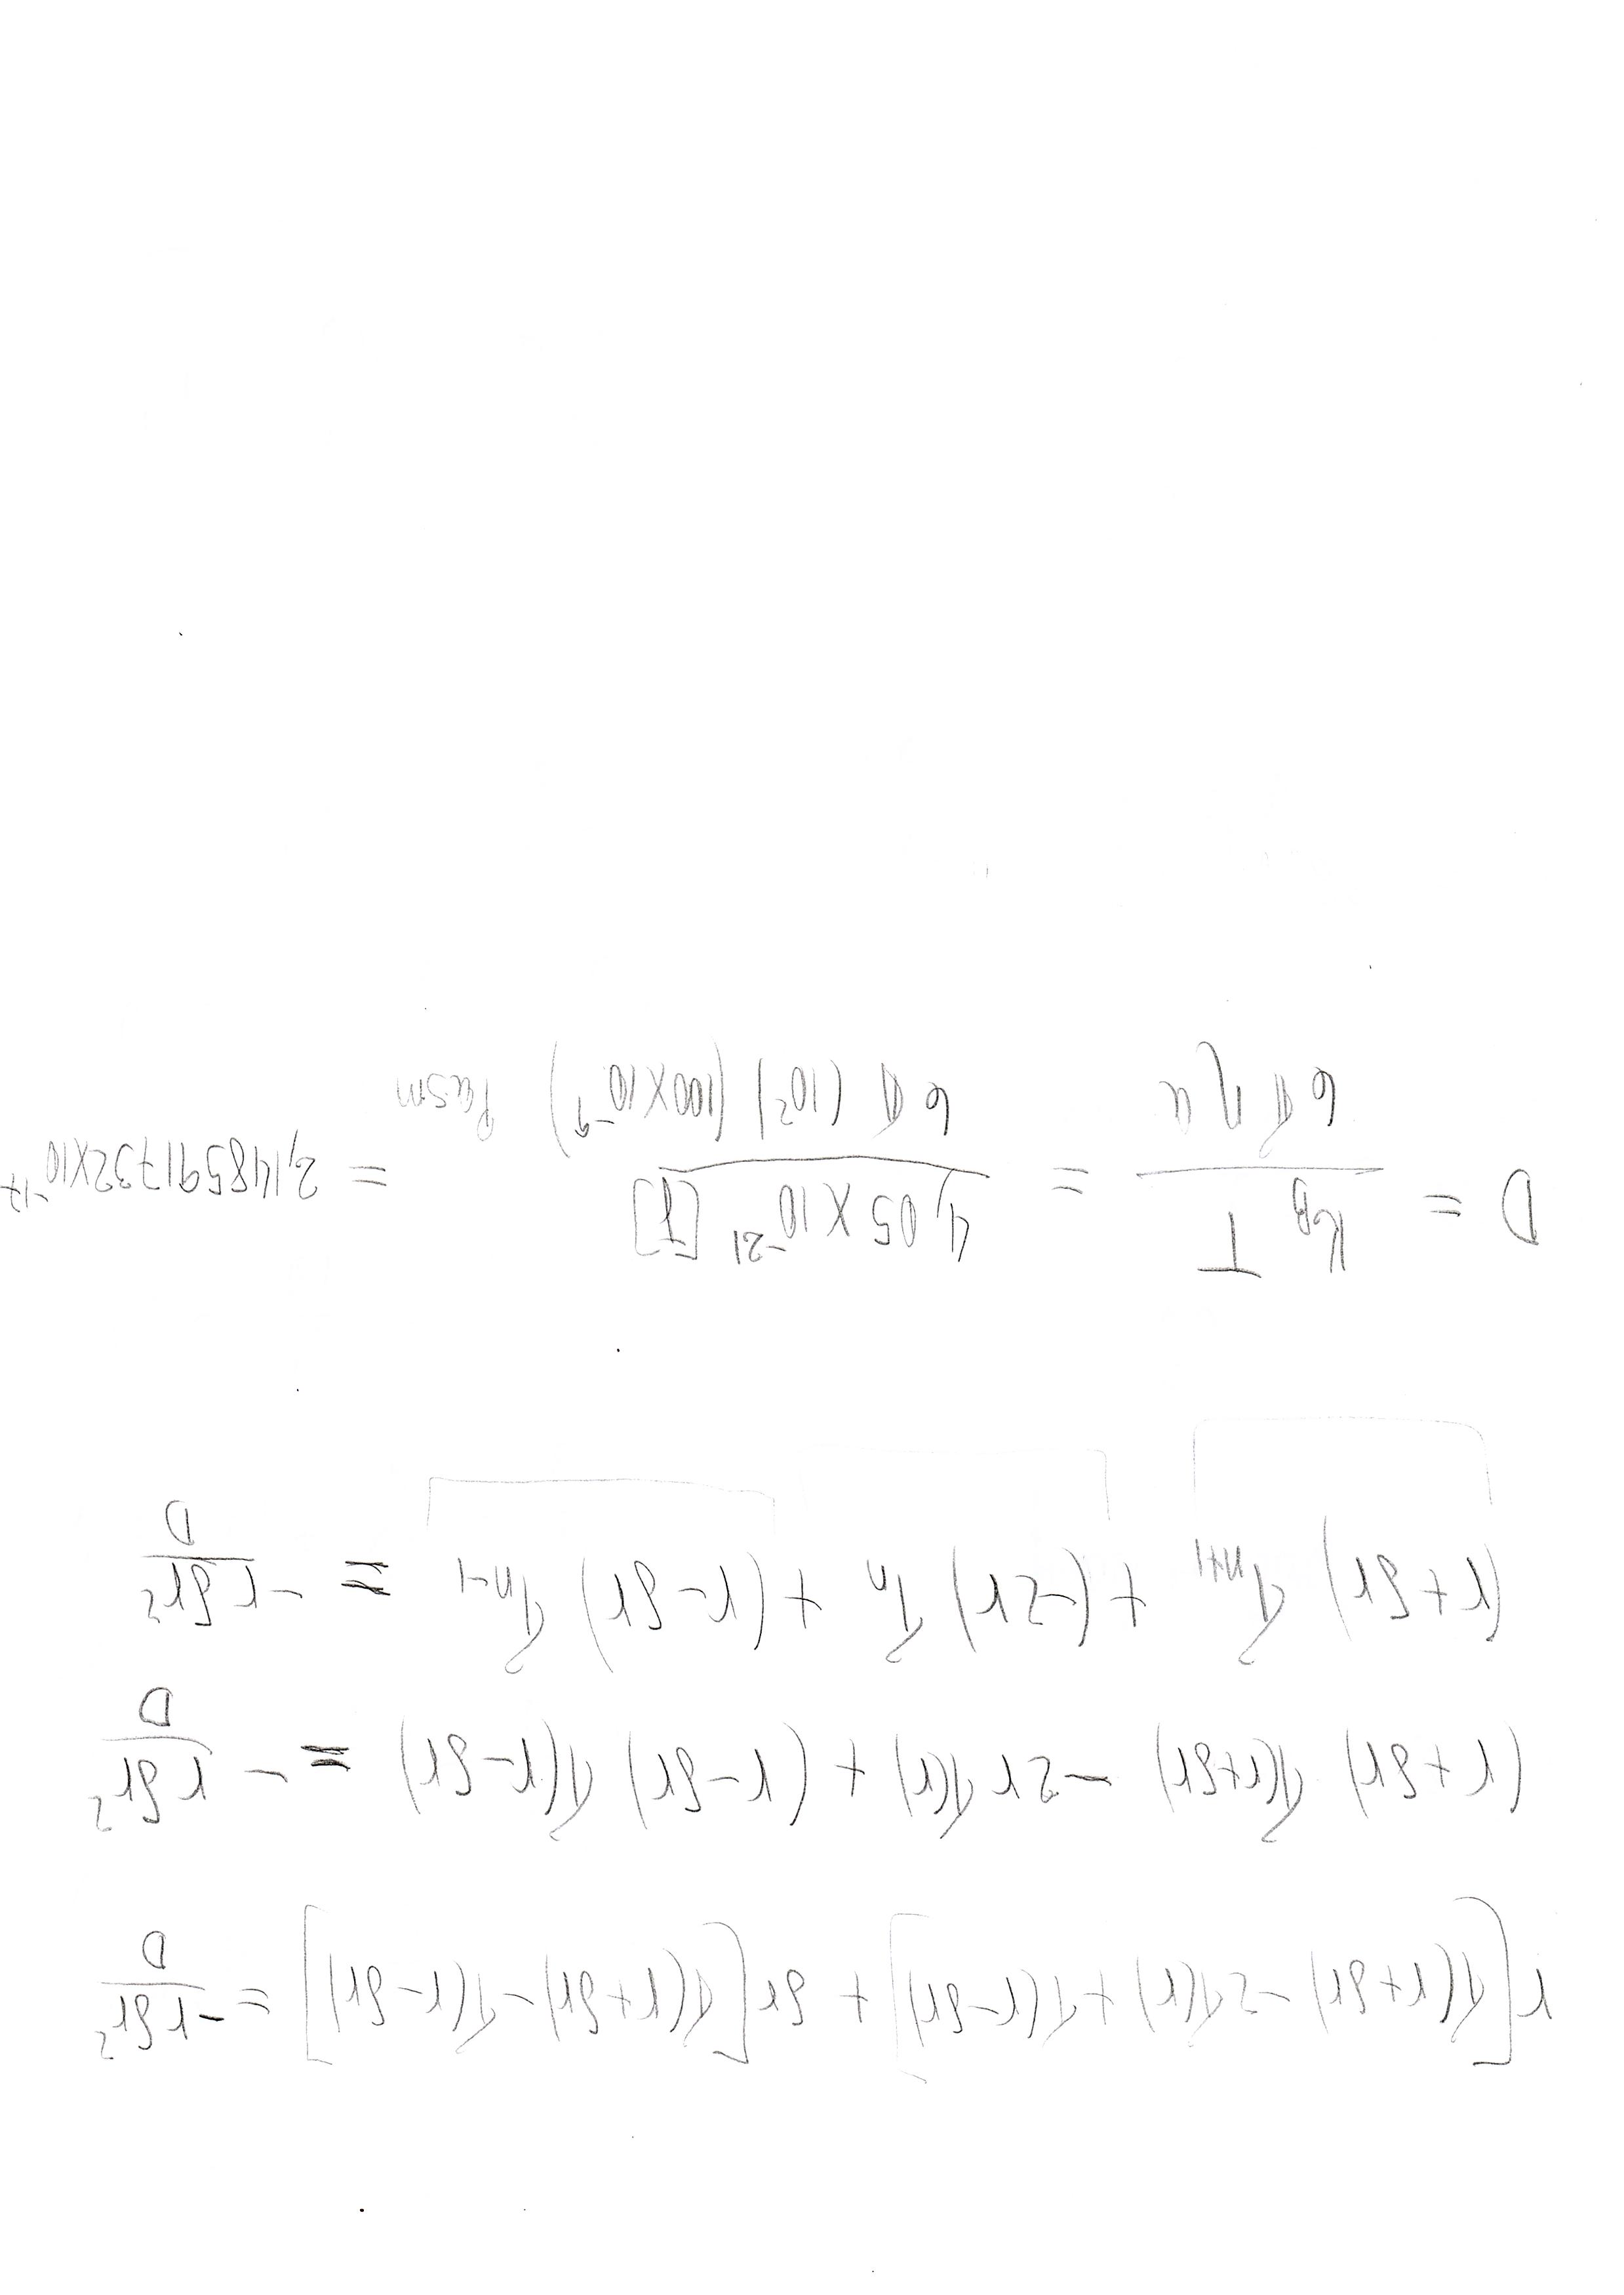 r[T(r+δr) -2T(r) + T(r-δr)] + δr[T(r+δr) - T(r-δr)] = -r δr² / D
(r+δr) T(r+δr) - 2r T(r) + (r-δr) T(r-δr) = - r δr² / D
(r+δr) Tₙ₊₁ + (-2r) Tₙ + (r-δr) Tₙ₋₁ = -r δr² / D
D = K_B T / 6πηa = 4,05 x 10⁻²¹ [J] / 6π (10²) (100x10⁻⁹) Pasm = 2,148591732x10⁻¹⁷